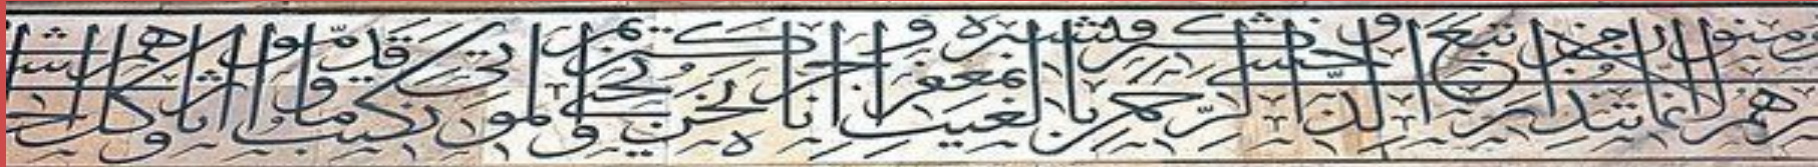 لا يؤمنون إنما تنذر من اتبع الذكر وخشي الرحمن بالغيب فبشره بمغفرة وأجر كريم إنا نحن نحيي الموتى ونكتب ما قدموا وآثارهم وكل